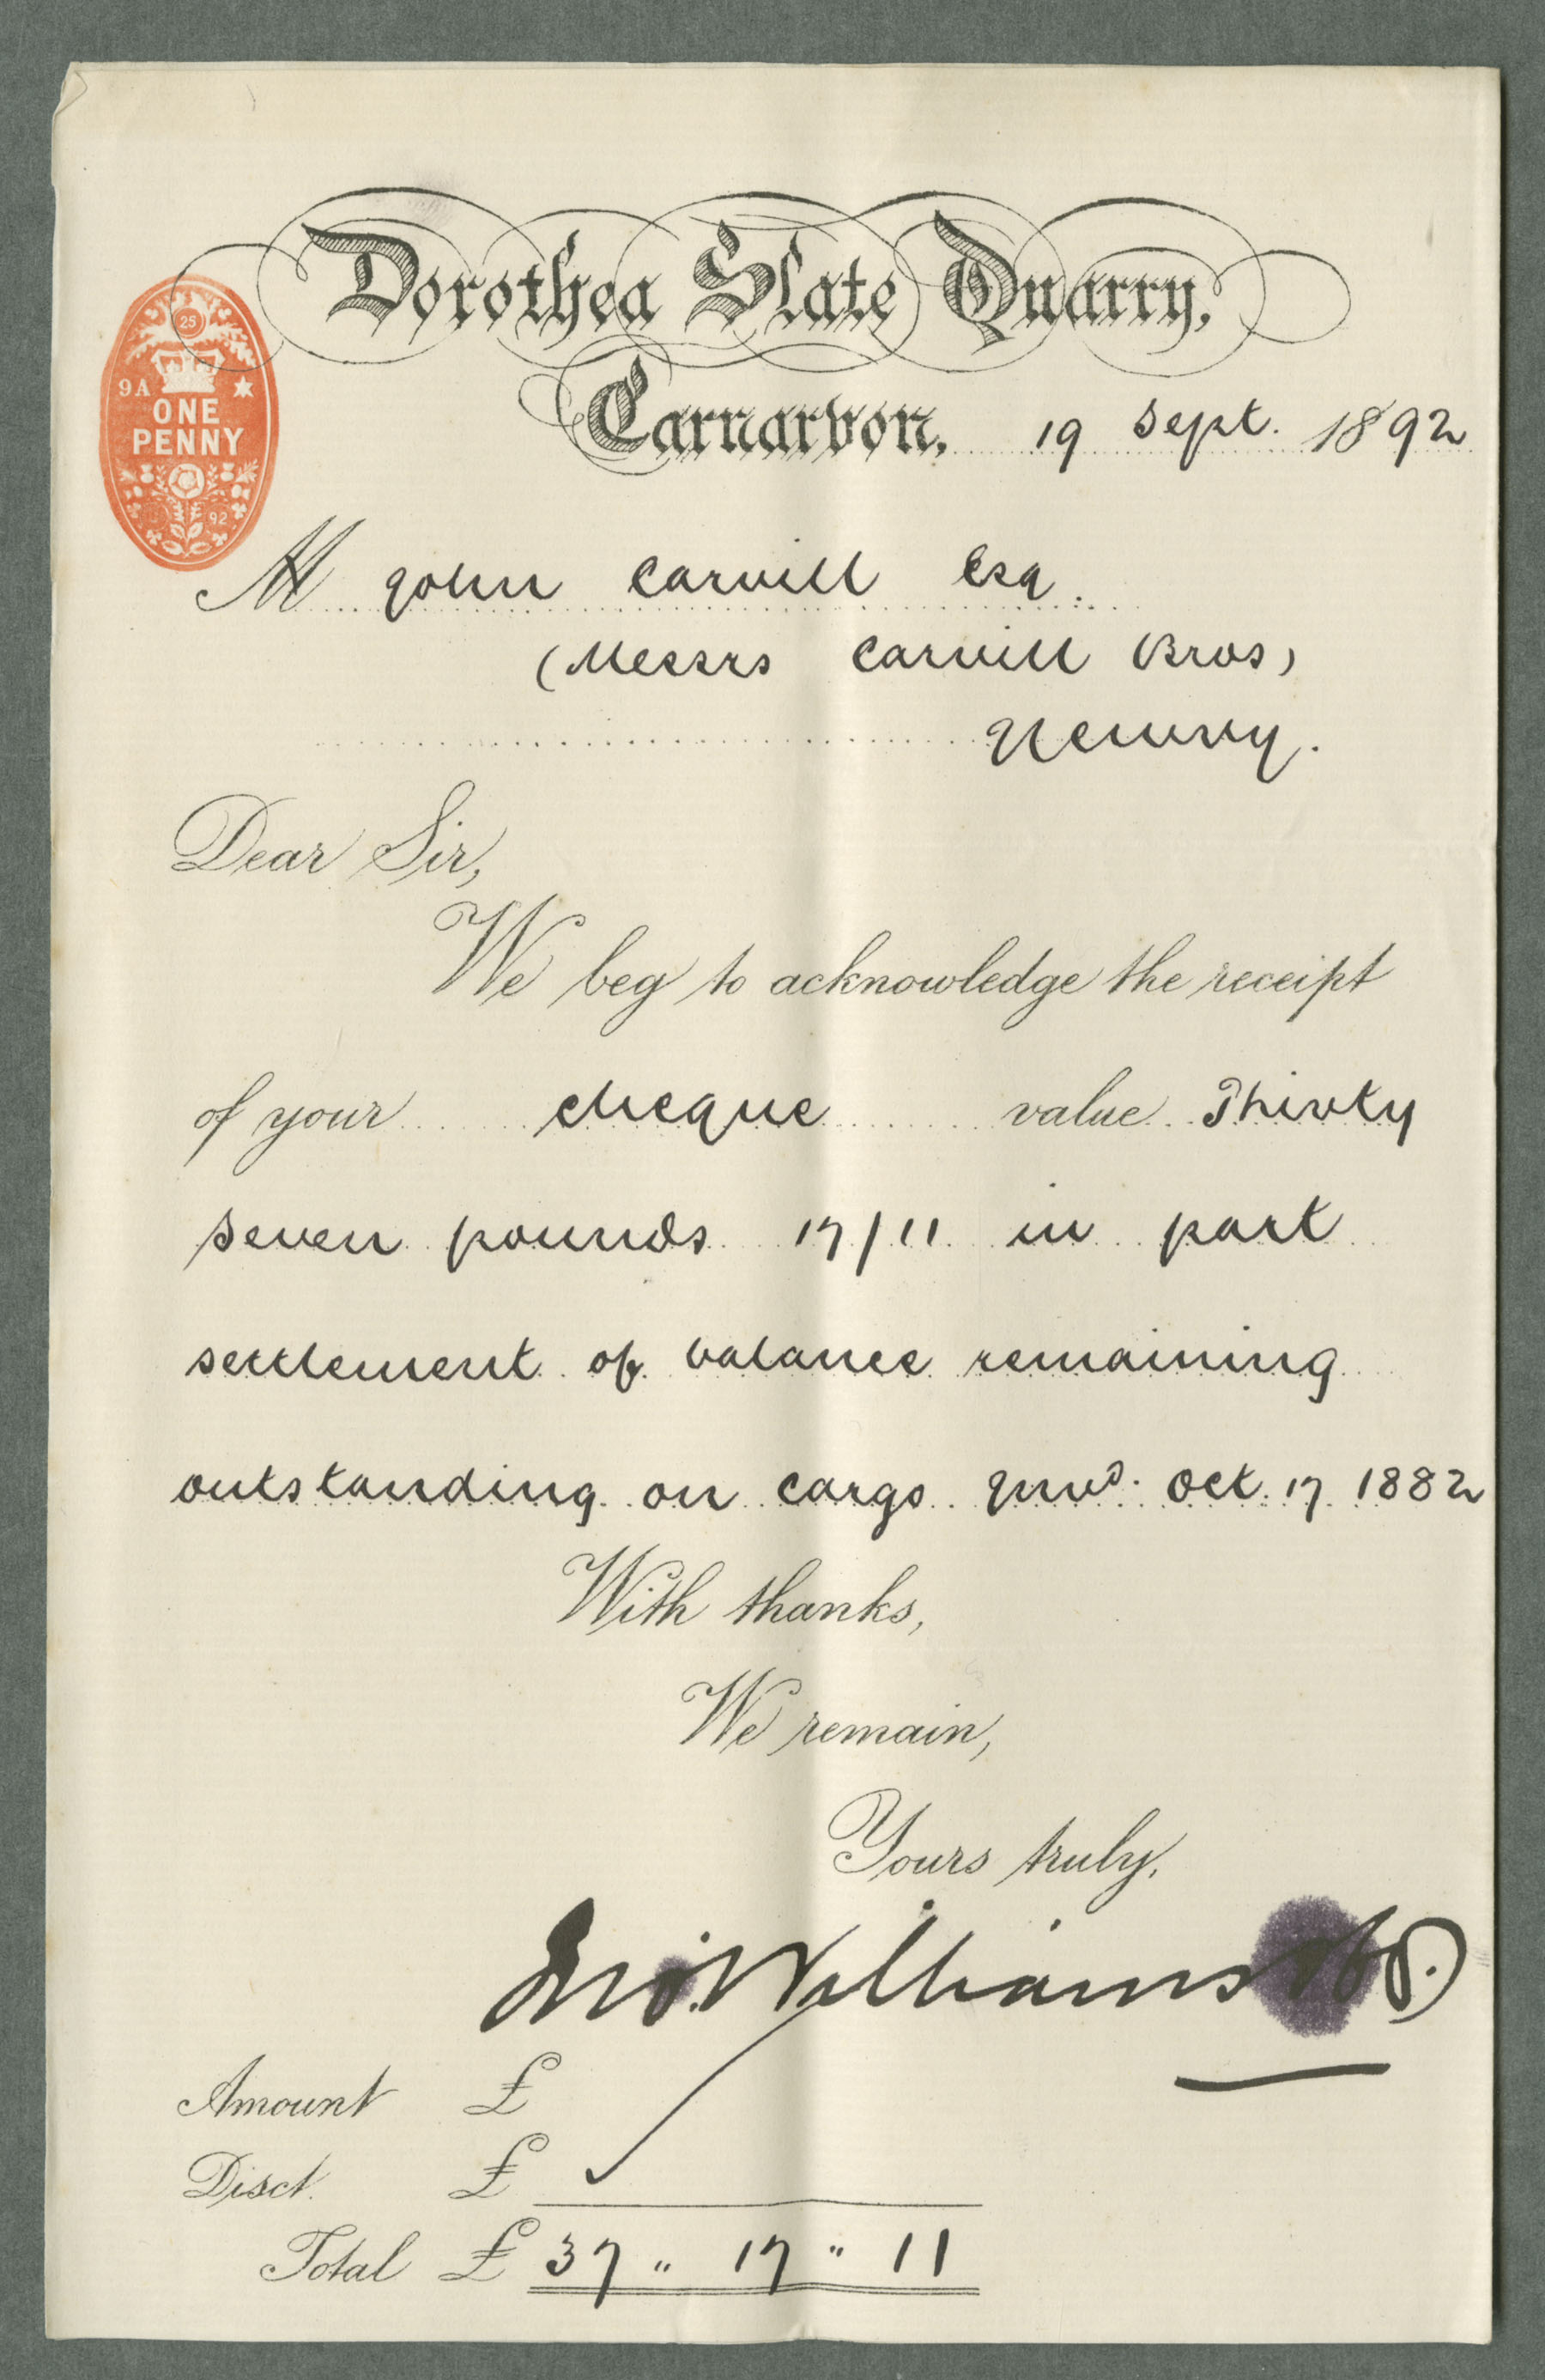 Dorothea Slate Quarry,
Carnarvon, 19 Sept. 1892
25
9A
ONE
PENNY
92
M John Carvill Esq.
(Messrs Carvill Bros)
Newry.
Dear Sir,
We beg to acknowledge the receipt
of your cheque value Thirty
seven pounds 17/11 in part
settlement of balance remaining
outstanding on cargo Invd. Oct. 17 1882
With thanks,
We remain,
Yours truly,
Jno. Williams
Amount £
Disct. £
Total £ 37 " 17 " 11